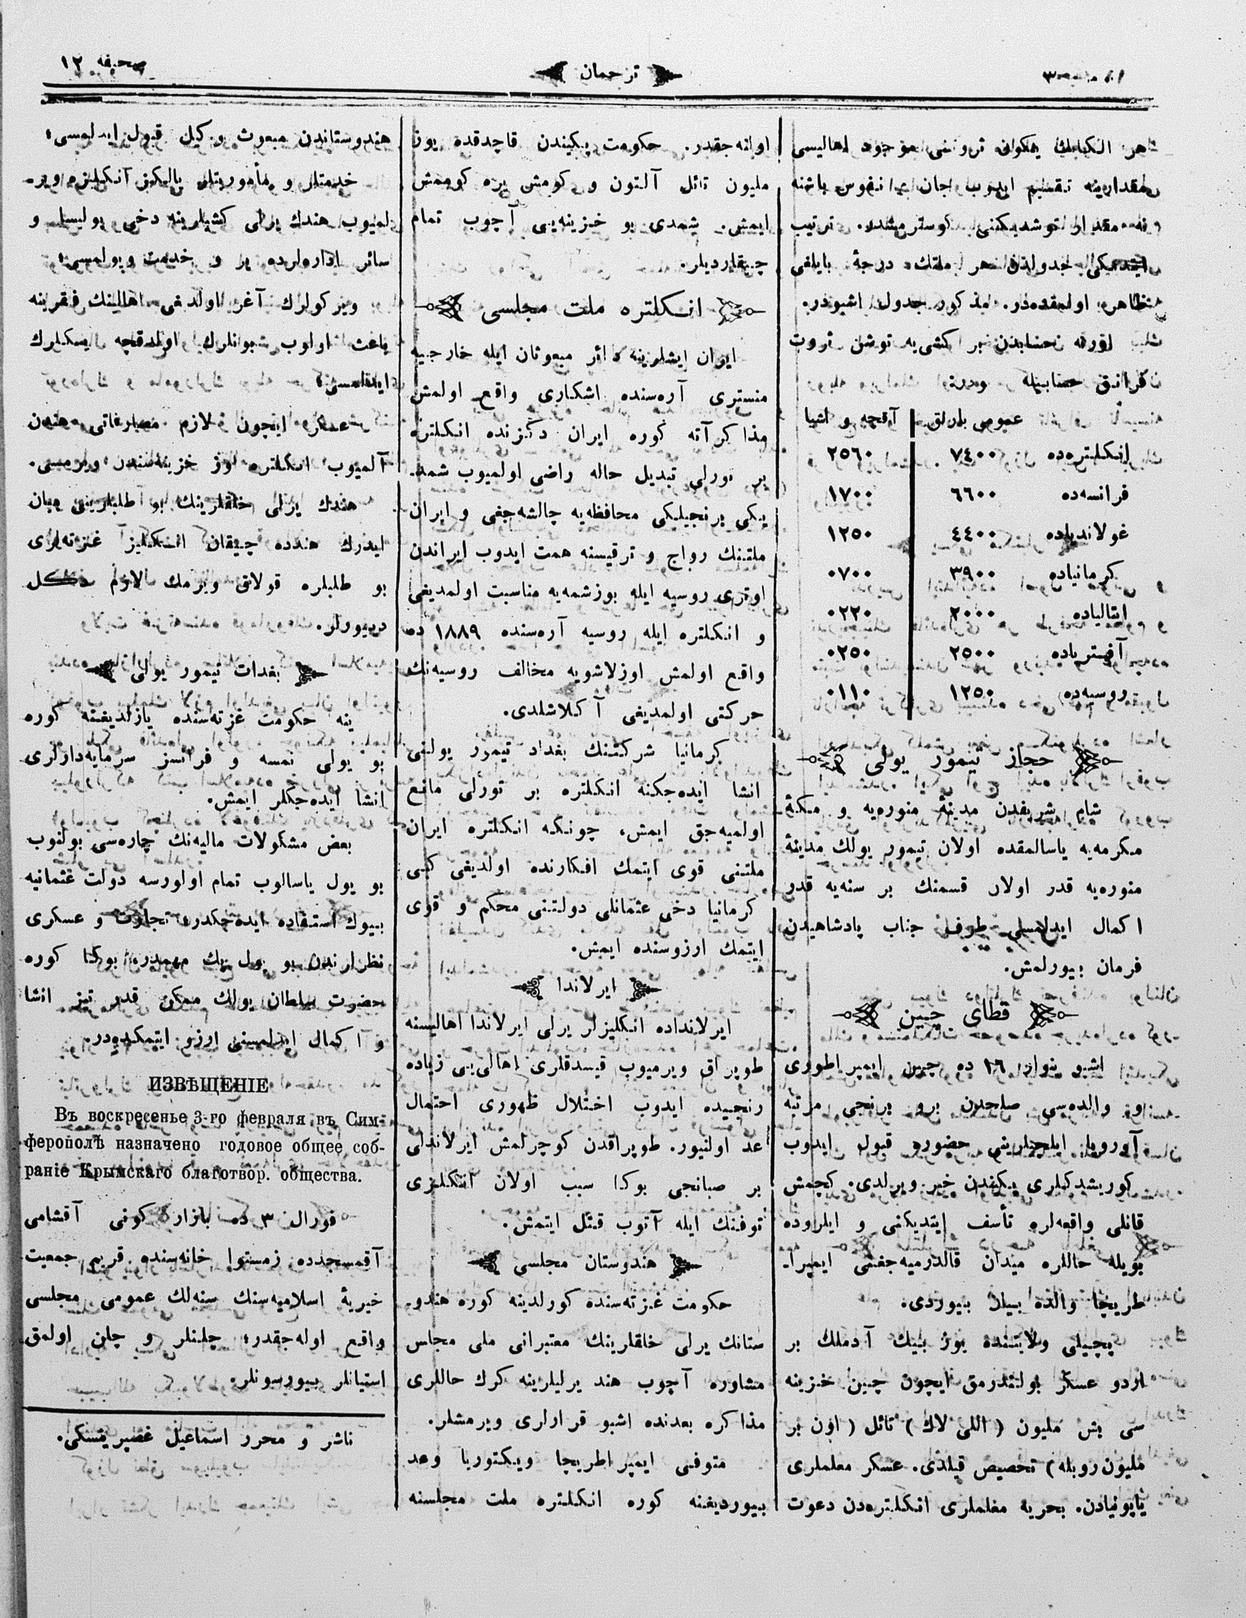 صحیفه ١٢
ترجمان
٣
هر انكیلیك یمكوانی ثروتنی موجود اهالیسی
مقدارینه تقسیم ایدوب جان و نفوس باشنه
نه مقدار توشدیكنی كوسترمشلر. ترتیب
ایتدیكی جدولدن هر ملتك درجهٔ بایلغی
ظاهر اولمقده‌در. مذكور جدول اشبودر.
اورته حسابدن بر كشی‌یه توشن ثروت
فرانق حسابیله
عمومی بارلق آقچه و اشیا
انكلتره‌ده ٧٤٠٠ ٢٥٦٠
فرانسه‌ده ٦٦٠٠ ١٧٠٠
غولاندیاده ٤٤٠٠ ١٢٥٠
كرمانیاده ٣٩٠٠ ٠٧٠٠
ایتالیاده ٢٠٠٠ ٠٢٢٠
آفستریاده ٢٥٠٠ ٠٢٥٠
روسیه‌ده ١٢٥٠ ٠١١٠
حجاز تیمور یولی
شام شریفدن مدینهٔ منوره‌یه و مكهٔ
مكرمه‌یه یاسالمقده اولان تیمور یولك مدینهٔ
منوره‌یه قدر اولار قسمنك بر سنه‌یه قدر
اكمال ایدلمسی طرف جناب پادشاهیدن
فرمان بیورلمش.
قطای چین
اشبو ینوار ١٦ ده چین ایمپراطوری
و والده‌سی صلحدن برو برنجی مرتبه
آوروپا ایلچیلرینی حضوره قبول ایدوب
كورشدكلری پكیندن خبر ویرلدی. كچمش
قانلی واقعه‌لره تأسف ایتدیكنی و ایلروده
بویله حاللره میدان قالدرمیه‌جغنی ایمپرا-
طریچا والده بیان بیوردی.
پچیلی ولایتنده یوز بیك آدملك بر
اردو عسكر بولندرمق ایچون چین خزینه
سی بش ملیون (اللی لاك) تائل (اون بر
ملیون روبله) تخصیص قیلدی. عسكر معلملری
یاپونیادن. بحریه معلملری انكلتره‌دن دعوت
اولنه‌جقدر. حكومت پكیندن قاچدقده یوز
ملیون تائل آلتون و كومش یره كوممش
ایمش. شمدی بو خزینه‌یی آچوب تمام
چیقاردیلر.
انكلتره ملت مجلسی
ایران ایشلرینه دائر مبعوثان ایله خارجیه
منستری آره‌سنده اشكاری واقع اولمش
مذاكرآته كوره ایران دكزنده انكلتره
بر تورلی تبدیل حاله راضی اولمیوب شمد-
یكی برنجیلیكی محافظه‌یه چالشه‌جغی و ایران
ملتنك رواج و ترقیسنه همت ایدوب ایراندن
اوتری روسیه ایله بوزشمه‌یه مناسبت اولمدیغی
و انكلتره ایله روسیه آره‌سنده ١٨٨٩ ده
واقع اولمش اوزلاشویه مخالف روسیه‌نك
حركتی اولمدیغی آكلاشلدی.
كرمانیا شركتنك بغداد تیمور یولنی
انشا ایده‌جكنه انكلتره بر تورلی مانع
اولمیه‌جق ایمش، چونكه انكلتره ایران
ملتنی قوی ایتمك افكارنده اولدیغی كبی
كرمانیا دخی عثمانلی دولتنی محكم و قوی
ایتمك ارزوسنده ایمش.
ایرلاندا
ایرلانداده انكلیزلر یرلی ایرلاندا اهالیسنه
طوپراق ویرمیوب قیسدقلری اهالی‌یی زیاده
رنجیده ایدوب اختلال ظهوری احتمال
عد اولنیور. طوپراقدن كوچرلمش ایرلاندلی
بر صبانجی بوكا سبب اولان انكلیزی
توفنك ایله آتوب قتل ایتمش.
هندوستان مجلسی
حكومت غزته‌سنده كورلدینه كوره هندو-
ستانك یرلی خلقلرینك معتبرانی ملی مجلس
مشاوره آچوب هند یرلیلرینه كرك حاللری
مذاكره بعدنده اشبو قرارلری ویرمشلر.
متوفی ایمپراطریچا ویكتوریا وعد
بیوردیغنه كوره انكلتره ملت مجلسنه
هندوستاندن مبعوث وكیل قبول ایدلمسی؛
خدمتلر و مأموریتلر یالكز انكلیزه ویر-
لمیوب هندك یرلی كشیلرینه دخی پولیسا و
سائر اداره‌لرده یر و خدمت ویرلمسی؛
ویركولرك آغر اولدیغی اهالینك فقرینه
باعث اولوب شونلرك اولدقچه یكللرك
ایدلمسی؛
عسكر ایچون لازم مصارفاتی هندن
آلمیوب انكلتره اوز خزینه‌سندن ویرمسی.
هندك یرلی خلقلرینك بو طلبلرینی بیان
ایدرك هندده چیقان انكلیز غزته‌لری
بو طلبلره قولاق ویرمك لازم دكل
دییورلر.
بغدات تیمور یولی
ینه حكومت غزته‌سنده یازلدیغنه كوره
بو یولی نمسه و فرانسز سرمایه‌دارلری
انشا ایده‌جكلر ایمش.
بعض مشكولات مالیه‌نك چاره‌سی بولنوب
بو یول یاسالوب تمام اولورسه دولت عثمانیه
بیوك استفاده ایده‌جكدر. تجارت و عسكری
نظرلرندن بو یول پك مهمدر. بوكا كوره
حضرت سلطان یولك ممكن قدر تیز انشا
و اكمال ایدلمسنی ارزو ایتمكده‌در.
ИЗВѢЩЕНІЕ
Въ воскресенье 3-го февраля въ Сим-
ферополѣ назначено годовое общее соб-
раніе Крымскаго благотвор. общества.
فورال ٣ ده بازار كونی آقشامی
آقمسجدده زمستوا خانه‌سنده قریم جمعیت
خیریهٔ اسلامیه‌سنك سنه‌لك عمومی مجلسی
واقع اوله‌جقدر؛ چلنلر و چلن اولمق
استیانلر بیورسونلر.
ناشر و محرر اسماعیل غصپرینسكی.